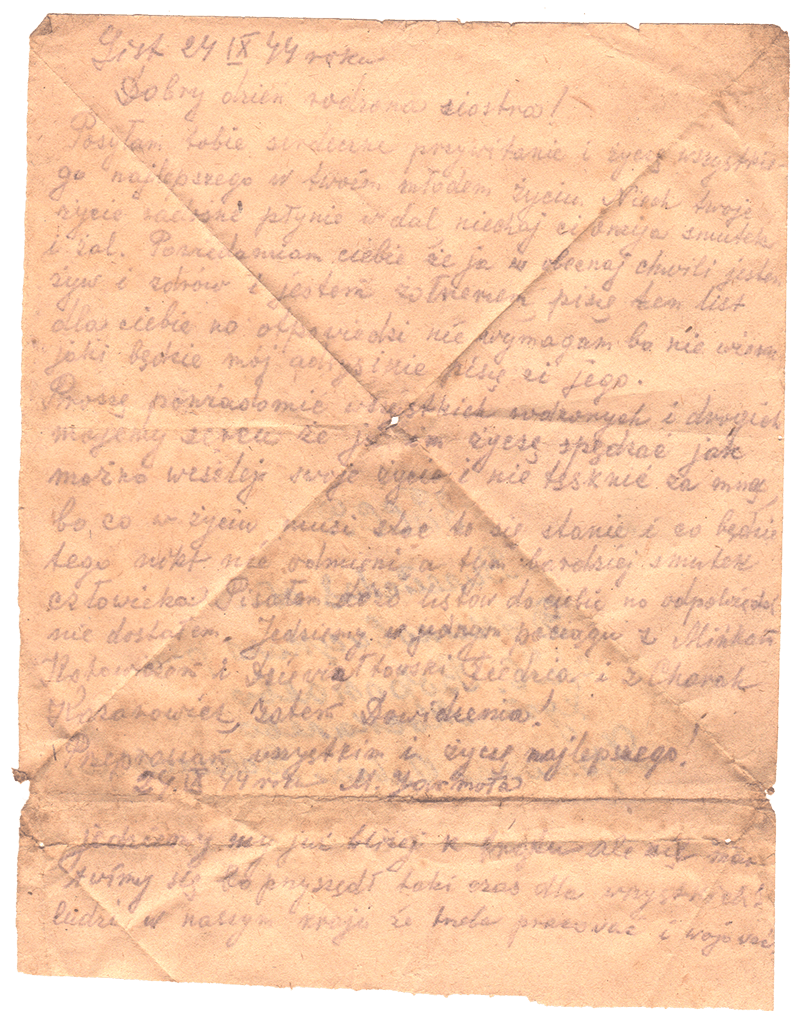 List 24 IX 44 roku
Dobry dzień rodzona siostra!
Posyłam tobie serdeczne przywitanie i życzę wszystkie-
go najlepszego w twoim młodem życiu. Niech twoje
życie radosne płynie w dal niechaj ci smutek
i żal. Powiedamiam ciebie że ja w obecnaj chwili jestem
żyw i zdrów i jestem żołnierem, piszę ten list
dla ciebie no otpowiedzi nie wymagam bo nie wiem
jaki będzie mój i nie piszę ci jego.
Proszę powiadomie wszystkich rodzonych i drogich
mojemy sercu że ja im życzę spędzać jak
można weselij swoje życie i nie tęsknić za mną,
bo co w życiu musi stać to się stanie i co będzie
tego nikt nie odmieni a tym bardziej smutek
człowieka. Pisałem do listów do ciebie no odpowiedzi
nie dostałem. Jedziemy w jednym pociągu z
i z
Zatem Dowidzenia!
wszystkim i życzę najlepszego!
24 IX 44 rok M. Jarmoła
jedziemy my już bliżej k ale nie mar-
twimy się bo pryszedł taki czas dla wszystkich
ludzi w naszym kraju że treba pracować i wojować